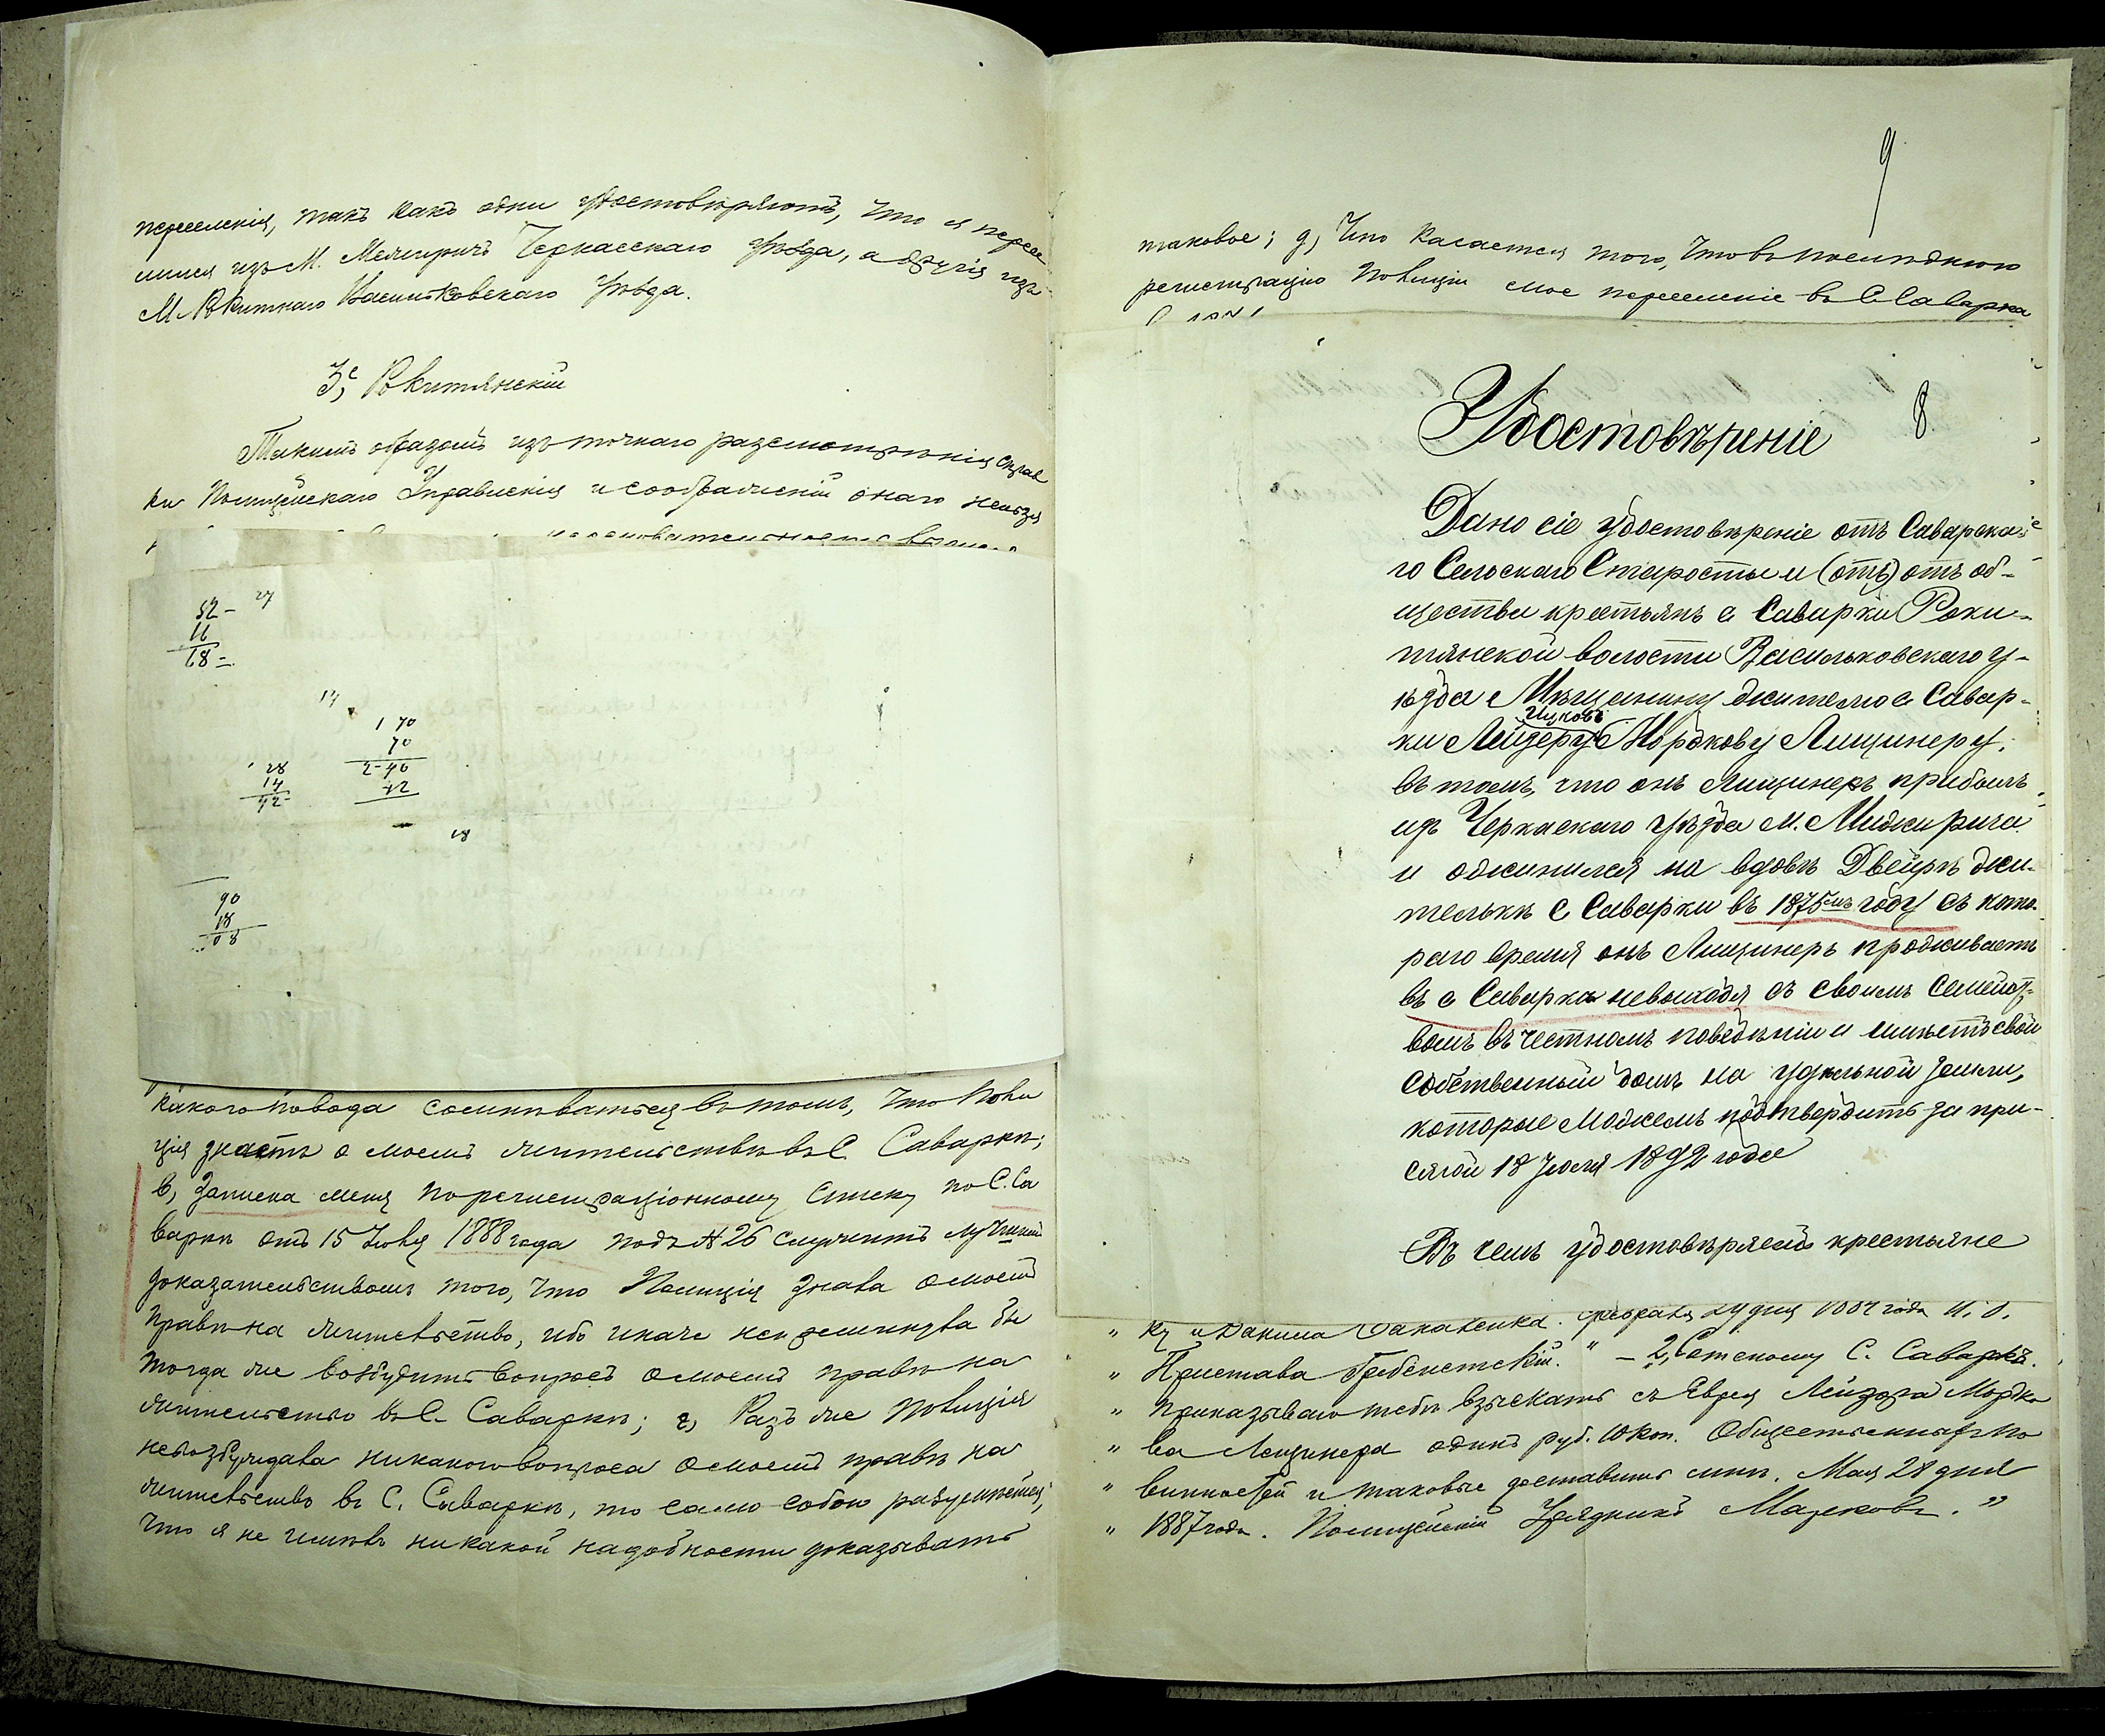 переселенія, такъ какъ одни удостовѣряютъ, что я пересе
лился изъ М. Межиричъ Черкасскаго Уѣзда, а другія изъ
М. Рокитнаго Васильковскаго Уѣзда.
3, Рокитянскій
Такимъ образомъ изъ точнаго разсмотрѣнія справ
ки Полицейскаго Управленія и соображеній онаго нельзя
52 - 27
16
68 =
14
1 70
70
2-40
42
28
14
42-
18
90
18
108
какого повода сомнѣваться въ томъ, что Поли
ція знаетъ о моемъ жительствѣ въ С. Саваркѣ;
в, Записка меня по регистраціонному списку по С. Са
варкѣ отъ 15 Іюля 1888 года подъ № 26 служитъ лучшимъ
доказательствомъ того, что Полиція знала о моемъ
правѣ на жительство, ибо иначе не преминула бы
тогда же возбудить вопросъ о моемъ правѣ на
жительство въ С. Саваркѣ; г, Разъ же Полиція
невозбуждала никакого вопроса о моемъ правѣ на
жительство въ С. Саваркѣ, то само собою разумѣется,
что я не имѣлъ никакой надобности доказывать
9
таковое; д, Что касается того, что въ послѣднюю
регистрацію Полиціи мое переселеніе въ С. Саварка
Удостовѣреніе 8.
Дано сіе удостовѣреніе отъ Саварска
го Сельскаго Старосты и (отъ) отъ об-
щества крестьянъ с Саварки Роки-
тянской волости Васильковскаго у-
ѣзда Мѣщанину жителю с Савар-
ки Лейзеру Ицковъ Мордкову Лищинеру,
въ томъ, что онъ Лищинеръ прибылъ
изъ Черкаскаго уѣзда м. Мижирича
и оженился на вдовѣ Двейрѣ жи-
телькѣ с Саварки въ 1875мъ году съ кото-
раго время онъ Лищинеръ проживаетъ
въ с Саварка невыходя съ своимъ семейст-
вомъ въ честномъ поведѣніи и имѣетъ свой
собственный домъ на удѣльной земли,
которые можемъ подтвердить за при-
сягой 18 Іюля 1892 года
Въ чемъ удостовѣряемъ крестьяне
" ку и Данила Февраля 24 дня 1884 года И. д.
" Пристава " - 2, Сотскому С. Саварка.
" Приказываю тебѣ взыскать съ Еврея Лейзора Мордко
" ва Лещинера одинъ руб. 10 коп. Общественныхъ по
" винностей и таковые доставить мнѣ. Мая 28 дня
" 1887 года. Полицейскій Урядникъ Марковъ. "